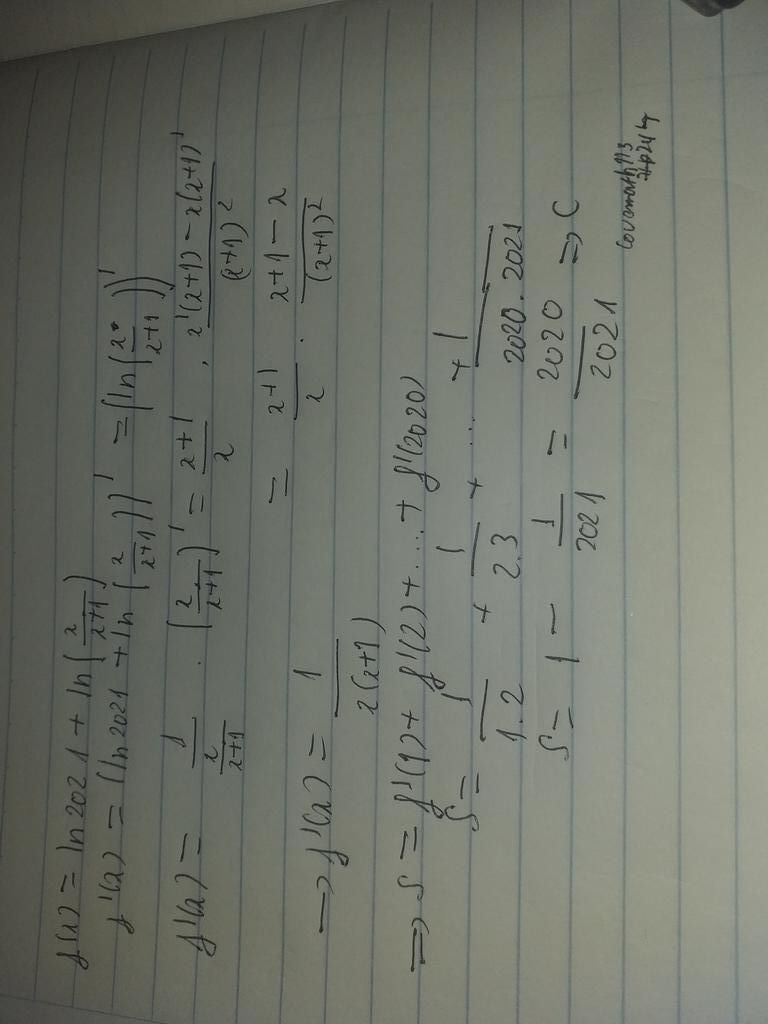 f(x) = ln2021 + ln(x/(x+1))
f'(x) = (ln2021 + ln(x/(x+1)))' = (ln(x/(x+1)))'
f'(x) = 1/(x/(x+1)) . (x/(x+1))' = (x+1)/x . (x'(x+1) - x(x+1)')/(x+1)²
= (x+1)/x . (x+1-x)/(x+1)²
=> f'(x) = 1/(x(x+1))
=> S = f'(1) + f'(2) + .... + f'(2020)
S = 1/1.2 + 1/2.3 + ... + 1/2020.2021
S = 1 - 1/2021 = 2020/2021 => C